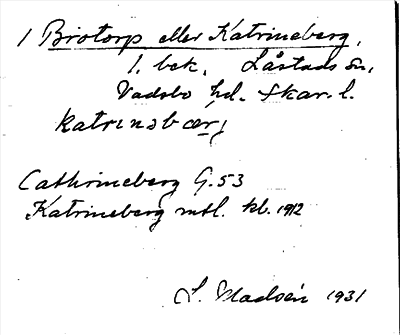 1 Brotorp eller Katrineberg,
1. bek, Låstads sn,
Vadsbo hd. Skar. l.
katrinəbærj
Cathrineberg G. 53
Katrineberg mtl. kb. 1912
1931